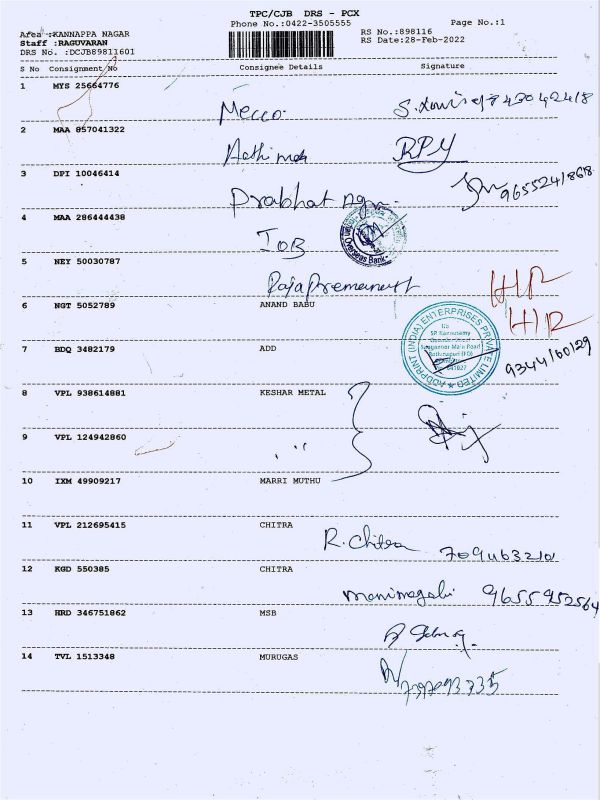 TPC/CJB DRS - PCX
Phone No.:0422-3505555
Page No.:1
Area :KANNAPPA NAGAR
Staff :RAGUVARAN
DRS No. :DCJB89811601
RS No.:898116
RS Date:28-Feb-2022
S No Consignment No Consignee Details Signature
1 MYS 25664776 Mecco
2 MAA 857041322 RPY
3 DPI 10046414 Prabhat Agn. 9655241868
4 MAA 286444438 IOB
Indian Overseas Bank
5 NEY 50030787 Raja Premanath
H/R
6 NGT 5052789 ANAND BABU H/R
ADDPRINT (INDIA) ENTERPRISES PRIVATE LIMITED
7 BDQ 3482179 ADD 9344160129
8 VPL 938614881 KESHAR METAL
9 VPL 124942860 , , ,
10 IXM 49909217 MARRI MUTHU
11 VPL 212695415 CHITRA R. Chitra
12 KGD 550385 CHITRA manimegalai 9655952564
13 HRD 346751862 MSB
14 TVL 1513348 MURUGAS